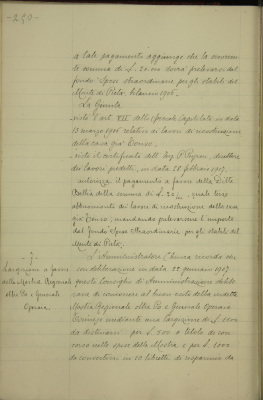 -250-
a tale pagamento aggiunge che la
somma di L. 20.000 dovrà prelevarsi dal
fondo Spese straordinarie per gli stabili del
Monte di Pietà, bilancio 1906.
La Giunta
visto l'art. VII dello speciale Capitolato in data
13 marzo 1906 relativo ai lavori di ricostruzione
della casa già
visto il certificato dell'Ing. direttore
dei lavori predetti, in data 28 febbraio 1907,
autorizza il pagamento a favore della Ditta
Bellia della somma di L. quale terzo
abbuonamento dei lavori di ricostruzione della casa
già mandando prelevarsene l'importo
dal fondo Spese straordinarie per gli stabili del
Monte di Pietà.
- 7 -
Largizione a favore
della Mostra Regionale
oltre Po e Generale
Operaia.
L'Amministratore Chucco ricorda
con deliberazione in data 22 gennaio 1907
questo Consiglio di Amministrazione
rava di concorrere al buon esito della
Mostra Regionale oltre Po e Generale Operaia
Torinese mediante una largizione di L.
da destinarsi per L. 500 a titolo di con-
corso nelle spese della Mostra e per L. 1000
da convertirsi in 50 libretti di risparmio da